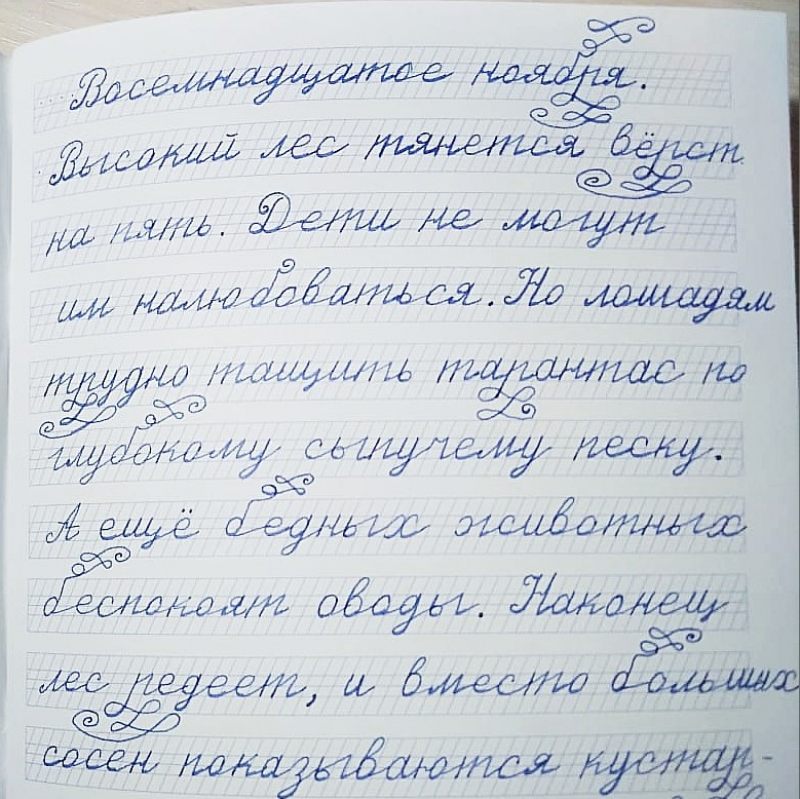 Восемнадцатое ноября.
Высокий лес тянется вёрст
на пять. Дети не могут
им налюбоваться. Но лошадям
трудно тащить тарантас по
глубокому сыпучему песку.
А ещё бедных животных
беспокоят оводы. Наконец
лес редеет, и вместо больших
сосен показываются кустар-